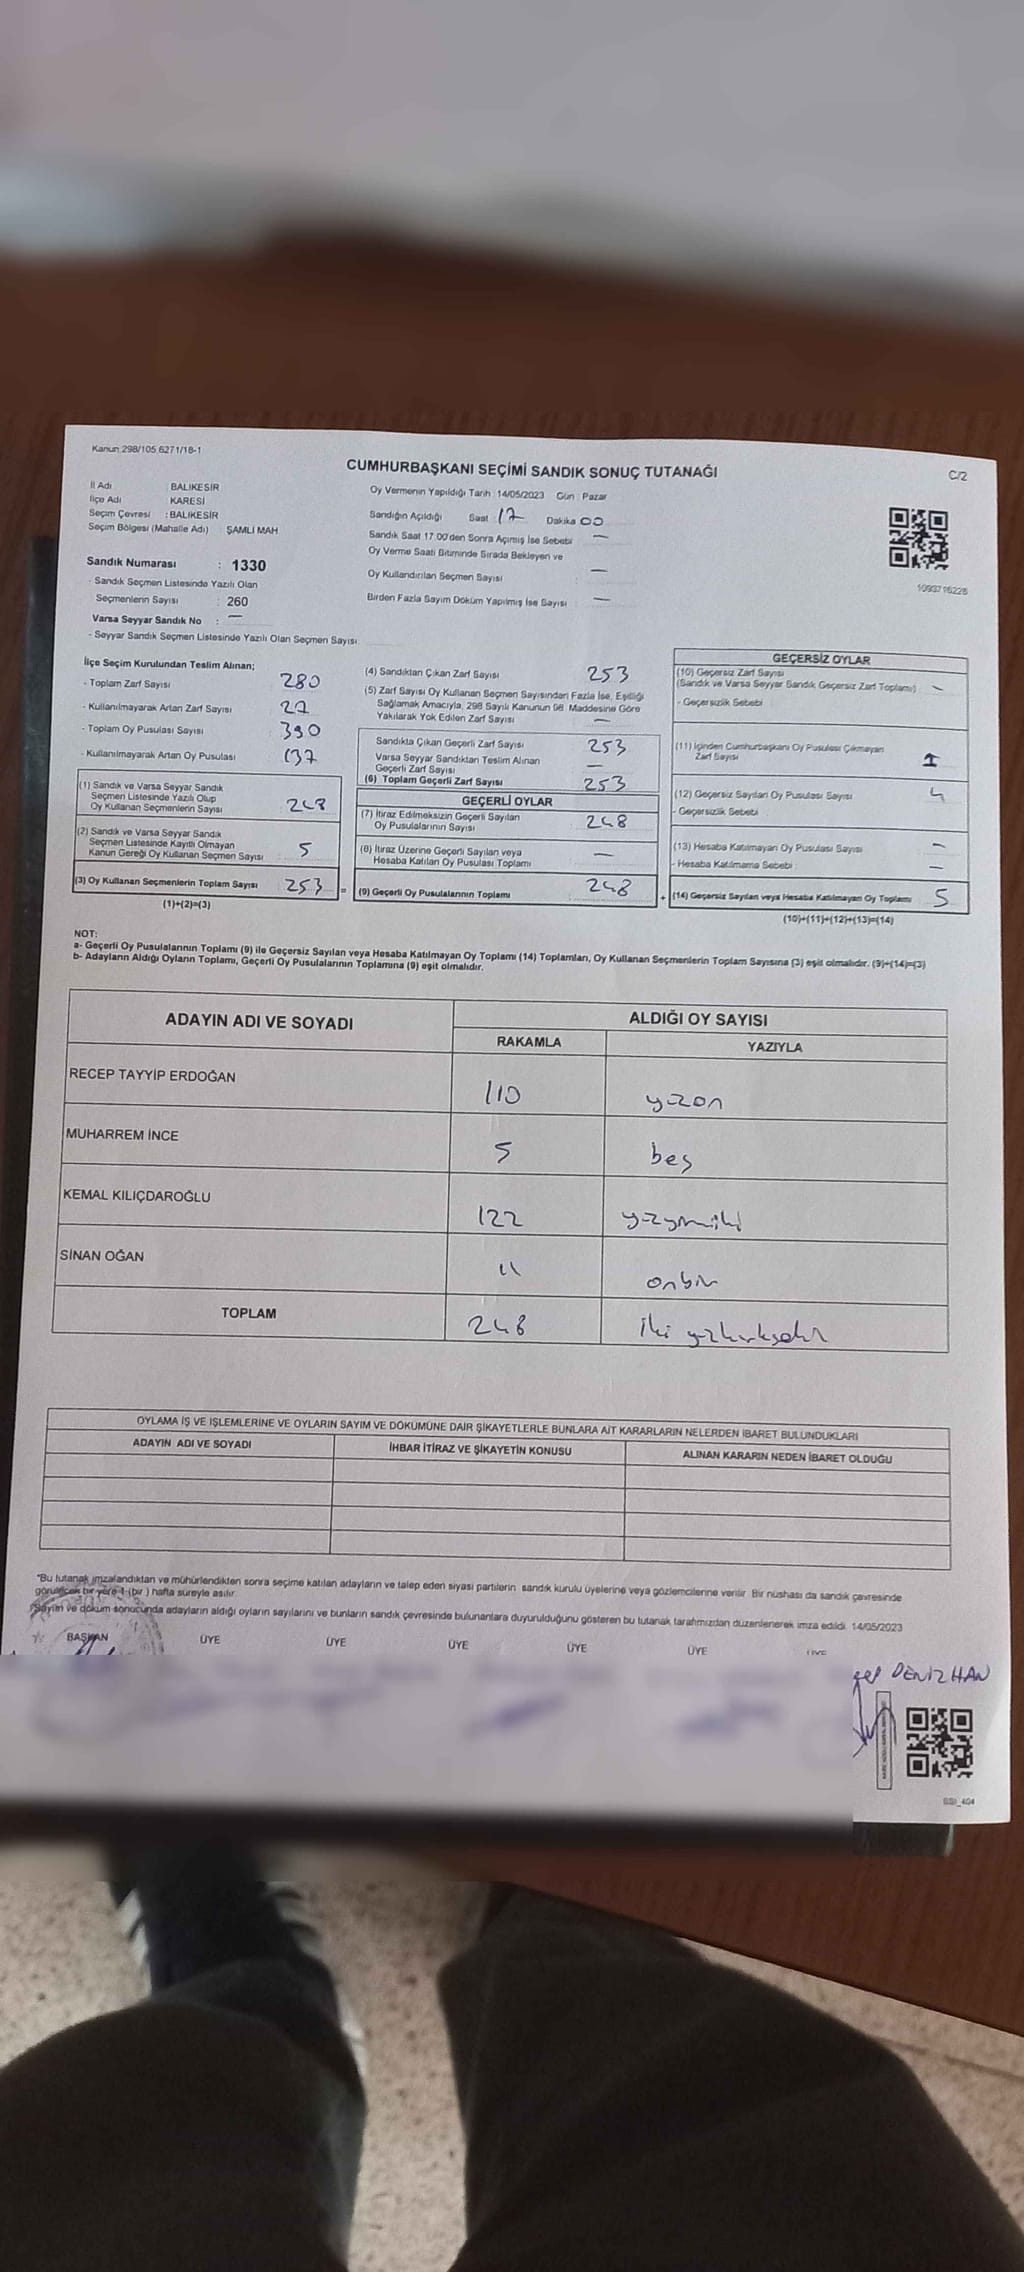 Kanun 298/105 6271/18-1
CUMHURBAŞKANI SEÇİMİ SANDIK SONUÇ TUTANAĞI
C/2
İl Adı BALIKESİR
İlçe Adı KARESİ
Seçim Çevresi : BALIKESİR
Seçim Bölgesi (Mahalle Adı) : ŞAMLI MAH
Oy Vermenin Yapıldığı Tarih 14/05/2023 Gün : Pazar
Sandığın Açıldığı Saat : 17 Dakika 00
Sandık Saat 17.00'den Sonra Açımış İse Sebebi : —
Oy Verme Saati Bitiminde Sırada Bekleyen ve
Oy Kullandırılan Seçmen Sayısı : —
Birden Fazla Sayım Döküm Yapılmış İse Sayısı : —
1093716226
Sandık Numarası : 1330
- Sandık Seçmen Listesinde Yazılı Olan
Seçmenlerin Sayısı : 260
Varsa Seyyar Sandık No : —
- Seyyar Sandık Seçmen Listesinde Yazılı Olan Seçmen Sayısı
İlçe Seçim Kurulundan Teslim Alınan;
- Toplam Zarf Sayısı 280
- Kullanılmayarak Artan Zarf Sayısı 27
- Toplam Oy Pusulası Sayısı 390
- Kullanılmayarak Artan Oy Pusulası 137
(1) Sandık ve Varsa Seyyar Sandık
Seçmen Listesinde Yazılı Olup
Oy Kullanan Seçmenlerin Sayısı 248
(2) Sandık ve Varsa Seyyar Sandık
Seçmen Listesinde Kayıtlı Olmayan
Kanun Gereği Oy Kullanan Seçmen Sayısı 5
(3) Oy Kullanan Seçmenlerin Toplam Sayısı 253 =
(1)+(2)=(3)
(4) Sandıktan Çıkan Zarf Sayısı 253
(5) Zarf Sayısı Oy Kullanan Seçmen Sayısından Fazla İse, Eşitliği
Sağlamak Amacıyla, 298 Sayılı Kanunun 98. Maddesine Göre
Yakılarak Yok Edilen Zarf Sayısı —
Sandıkta Çıkan Geçerli Zarf Sayısı 253
Varsa Seyyar Sandıktan Teslim Alınan
Geçerli Zarf Sayısı —
(6) Toplam Geçerli Zarf Sayısı 253
GEÇERLİ OYLAR
(7) İtiraz Edilmeksizin Geçerli Sayılan
Oy Pusulalarının Sayısı 248
(8) İtiraz Üzerine Geçerli Sayılan veya
Hesaba Katılan Oy Pusulası Toplamı —
(9) Geçerli Oy Pusulalarının Toplamı 248 +
GEÇERSİZ OYLAR
(10) Geçersiz Zarf Sayısı
(Sandık ve Varsa Seyyar Sandık Geçersiz Zarf Toplamı) —
- Geçersizlik Sebebi
(11) İçinden Cumhurbaşkanı Oy Pusulası Çıkmayan
Zarf Sayısı 1
(12) Geçersiz Sayılan Oy Pusulası Sayısı 4
- Geçersizlik Sebebi
(13) Hesaba Katılmayan Oy Pusulası Sayısı —
- Hesaba Katılmama Sebebi —
(14) Geçersiz Sayılan veya Hesaba Katılmayan Oy Toplamı 5
(10)+(11)+(12)+(13)=(14)
NOT:
a- Geçerli Oy Pusulalarının Toplamı (9) ile Geçersiz Sayılan veya Hesaba Katılmayan Oy Toplamı (14) Toplamları, Oy Kullanan Seçmenlerin Toplam Sayısına (3) eşit olmalıdır. (9)+(14)=(3)
b- Adayların Aldığı Oyların Toplamı, Geçerli Oy Pusulalarının Toplamına (9) eşit olmalıdır.
ADAYIN ADI VE SOYADI ALDIĞI OY SAYISI
RAKAMLA YAZIYLA
RECEP TAYYİP ERDOĞAN 110 yüzon
MUHARREM İNCE 5 beş
KEMAL KILIÇDAROĞLU 122 yüzyirmiiki
SİNAN OĞAN 11 onbir
TOPLAM 248 iki yüzkırksekiz
OYLAMA İŞ VE İŞLEMLERİNE VE OYLARIN SAYIM VE DÖKÜMÜNE DAİR ŞİKAYETLERLE BUNLARA AİT KARARLARIN NELERDEN İBARET BULUNDUKLARI
ADAYIN ADI VE SOYADI İHBAR İTİRAZ VE ŞİKAYETİN KONUSU ALINAN KARARIN NEDEN İBARET OLDUĞU
*Bu tutanak imzalandıktan ve mühürlendikten sonra seçime katılan adayların ve talep eden siyasi partilerin sandık kurulu üyelerine veya gözlemcilerine verilir. Bir nüshası da sandık çevresinde
görülecek bir yere 1 (bir ) hafta süreyle asılır.
Sayım ve döküm sonucunda adayların aldığı oyların sayılarını ve bunların sandık çevresinde bulunanlara duyurulduğunu gösteren bu tutanak tarafımızdan düzenlenerek imza edildi. 14/05/2023
BAŞKAN ÜYE ÜYE ÜYE ÜYE ÜYE ÜYE
DENİZHAN
SSI_404